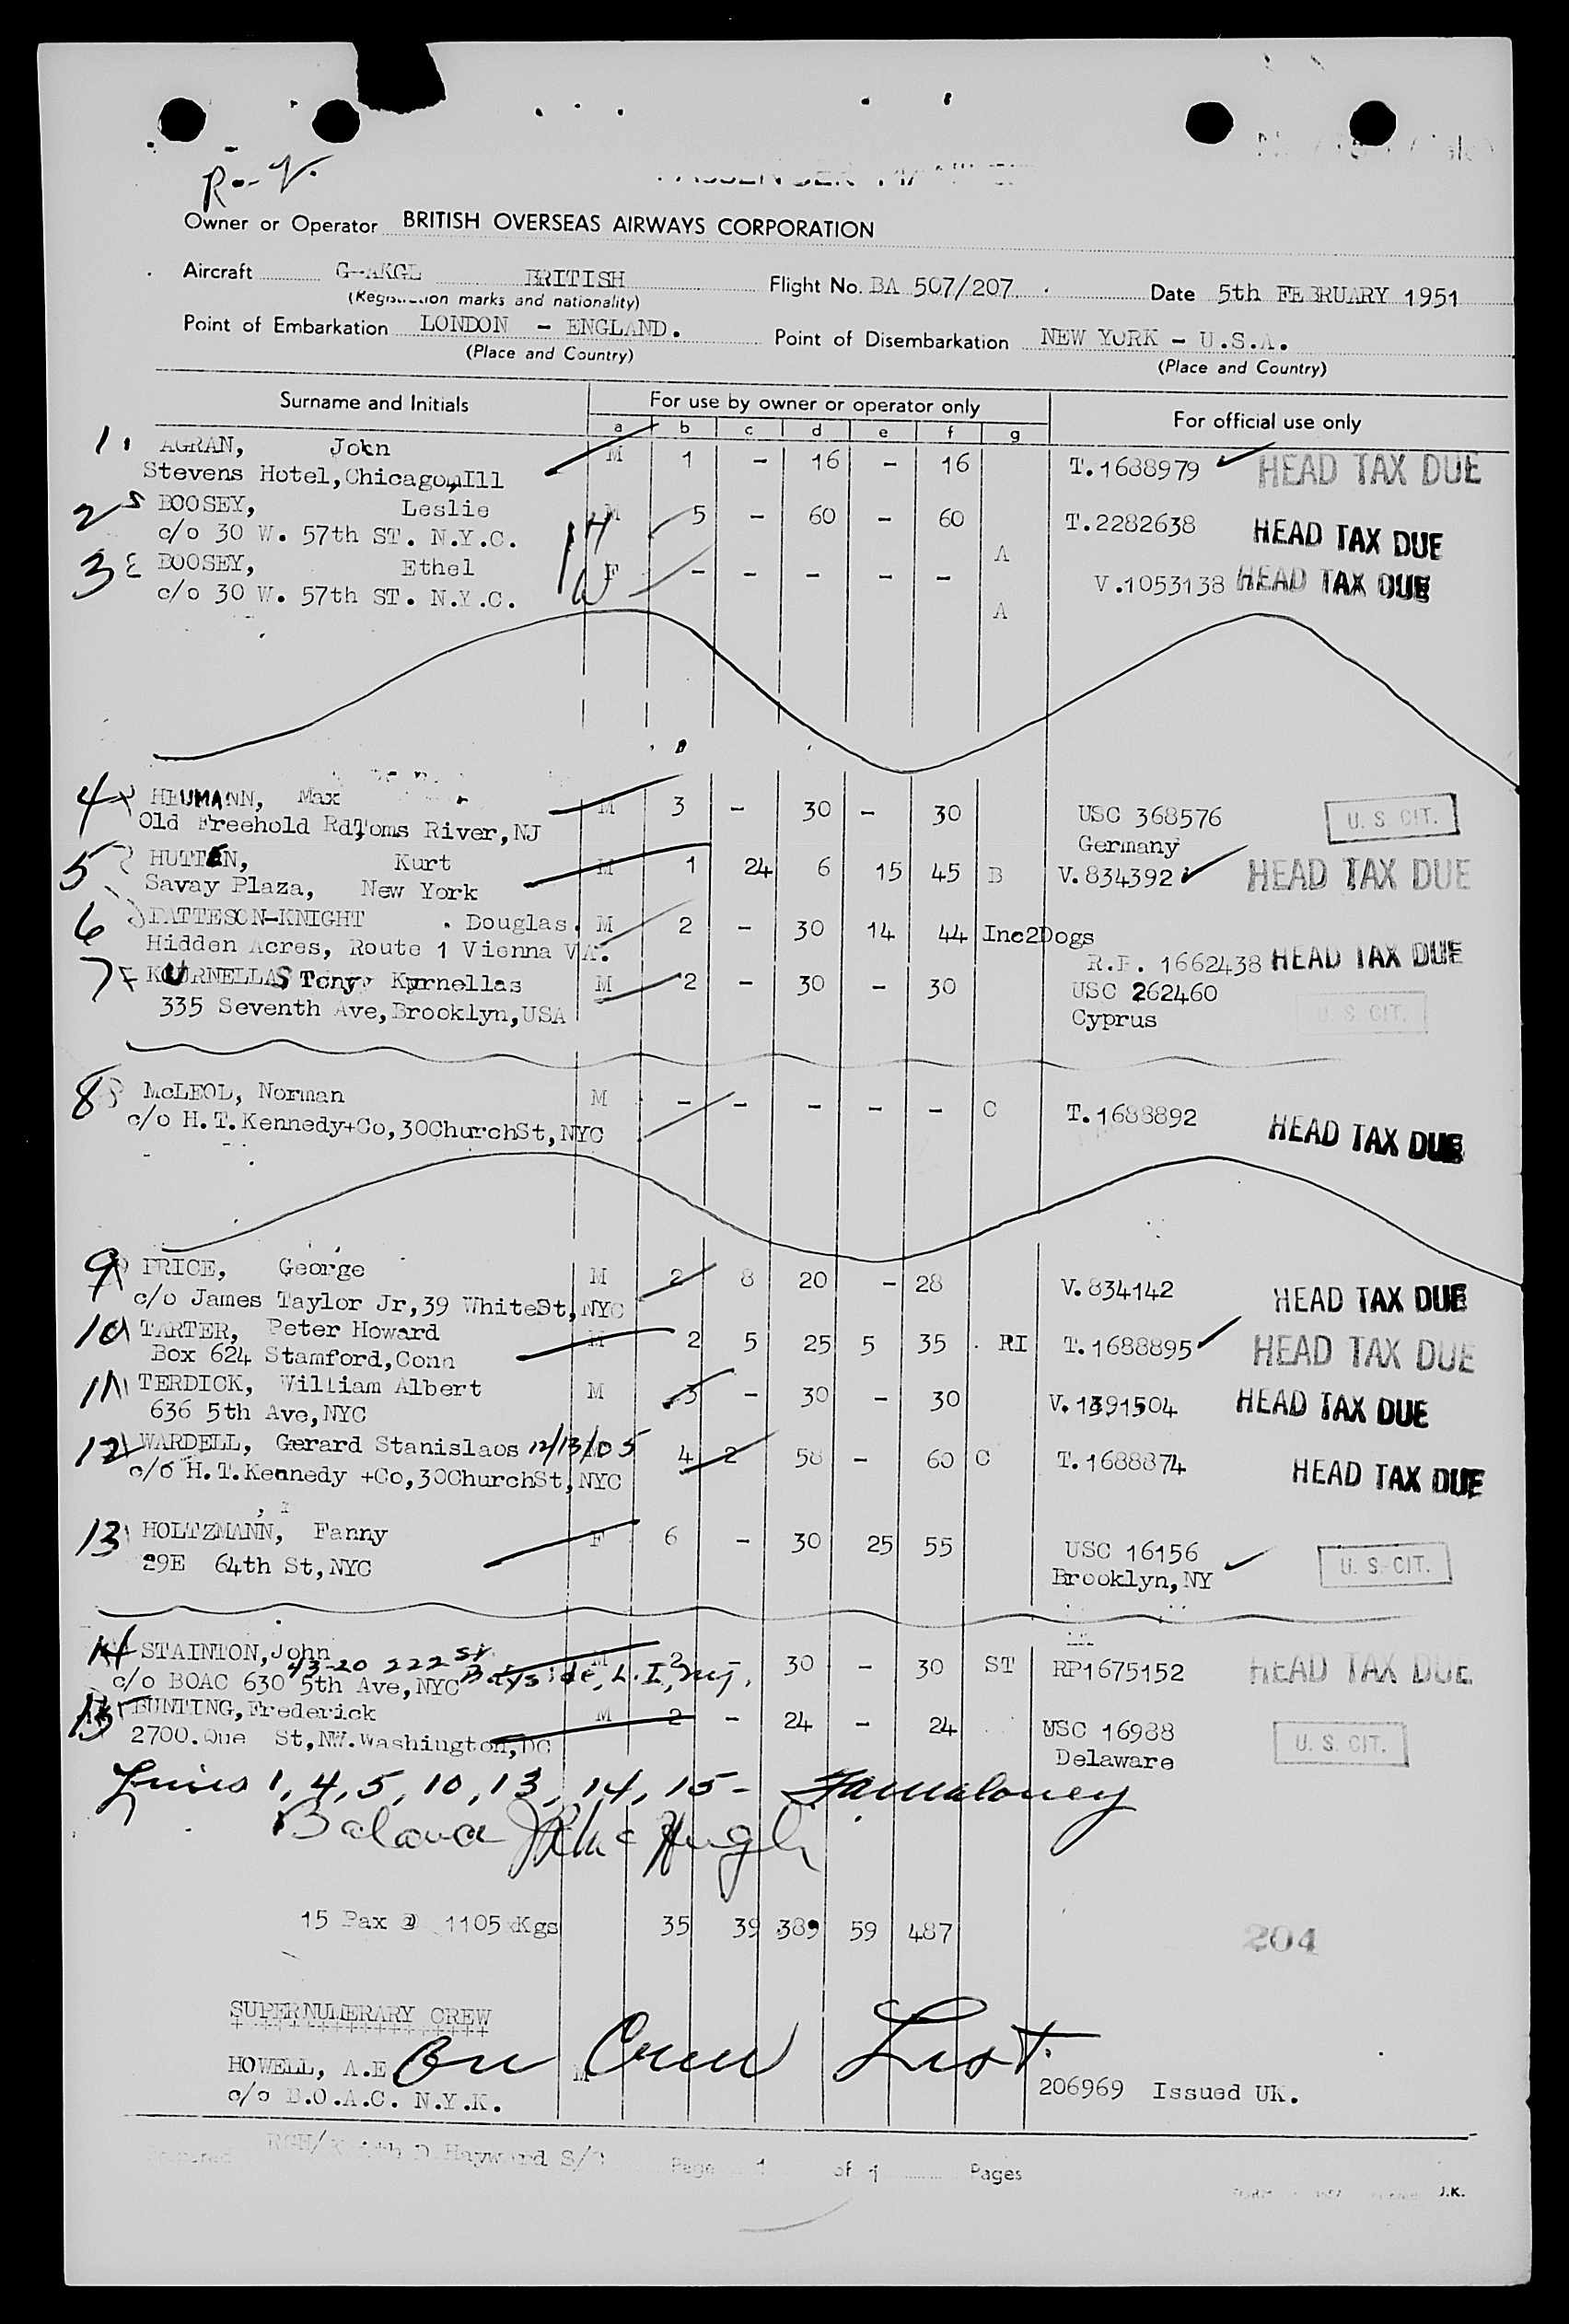 R-V.
Owner or Operator BRITISH OVERSEAS AIRWAYS CORPORATION
Aircraft G-AKGL BRITISH Flight No. BA 507/207. Date 5th FEBRUARY 1951
(Registration marks and nationality)
Point of Embarkation LONDON - ENGLAND. Point of Disembarkation NEW YORK - U.S.A.
(Place and Country) (Place and Country)
Surname and Initials For use by owner or operator only For official use only
a b c d e f g
1. AGRAN, John M 1 - 16 - 16 T.1688979 HEAD TAX DUE
Stevens Hotel, Chicago, Ill
2 BOOSEY, Leslie M 5 - 60 - 60 T.2282638 HEAD TAX DUE
c/o 30 W. 57th ST. N.Y.C. H A
3 BOOSEY, Ethel F - - - - - V.1053138 HEAD TAX DUE
c/o 30 W. 57th ST. N.Y.C. W A
4 HEUMANN, Max M 3 - 30 - 30 USC 368576 U. S. CIT.
Old Freehold Rd, Toms River, NJ Germany
5 HUTTEN, Kurt M 1 24 6 15 45 B V.834392 HEAD TAX DUE
Savay Plaza, New York
6 PATTESON-KNIGHT . Douglas. M 2 - 30 14 44 Inc2Dogs
Hidden Acres, Route 1 Vienna VA. R.P. 1662438 HEAD TAX DUE
7 KOURNELLAS Tony Kurnellas M 2 - 30 - 30 USC 262460
335 Seventh Ave, Brooklyn, USA Cyprus U. S. CIT.
8 McLEOD, Norman M - - - - - C T.1688892 HEAD TAX DUE
c/o H.T.Kennedy+Co,30ChurchSt,NYC
9 PRICE, George M 2 8 20 - 28 V.834142 HEAD TAX DUE
c/o James Taylor Jr, 39 WhiteSt, NYC
10 TARTER, Peter Howard M 2 5 25 5 35 . RI T.1688895 HEAD TAX DUE
Box 624 Stamford, Conn
11 TERDICK, William Albert M 3 - 30 - 30 V.1391504 HEAD TAX DUE
636 5th Ave, NYC
12 WARDELL, Gerard Stanislaos 12/13/05 4 2 58 - 60 C T.1688874 HEAD TAX DUE
c/o H.T.Kennedy +Co,30ChurchSt, NYC
13 HOLTZMANN, Fanny F 6 - 30 25 55 USC 16156 U. S. CIT.
29E 64th St, NYC Brooklyn, NY
14 STAINTON, John M 2 - 30 - 30 ST RP1675152 HEAD TAX DUE
43-20 222 St. Bayside, L. I, N.Y.
c/o BOAC 630 5th Ave, NYC
15 BUNTING, Frederick M 2 - 24 - 24 USC 16988 U. S. CIT.
2700. Que St, NW. Washington, DC Delaware
Lines 1, 4, 5, 10, 13, 14, 15 - Maloney
Balance McHugh
15 Pax @ 1105 Kgs 35 39 389 59 487 204
SUPERNUMERARY CREW
HOWELL, A.E M On Crew List.
c/o B.O.A.C. N.Y.K. 206969 Issued UK.
Hayward Page 1 of 1 Pages
J.K.